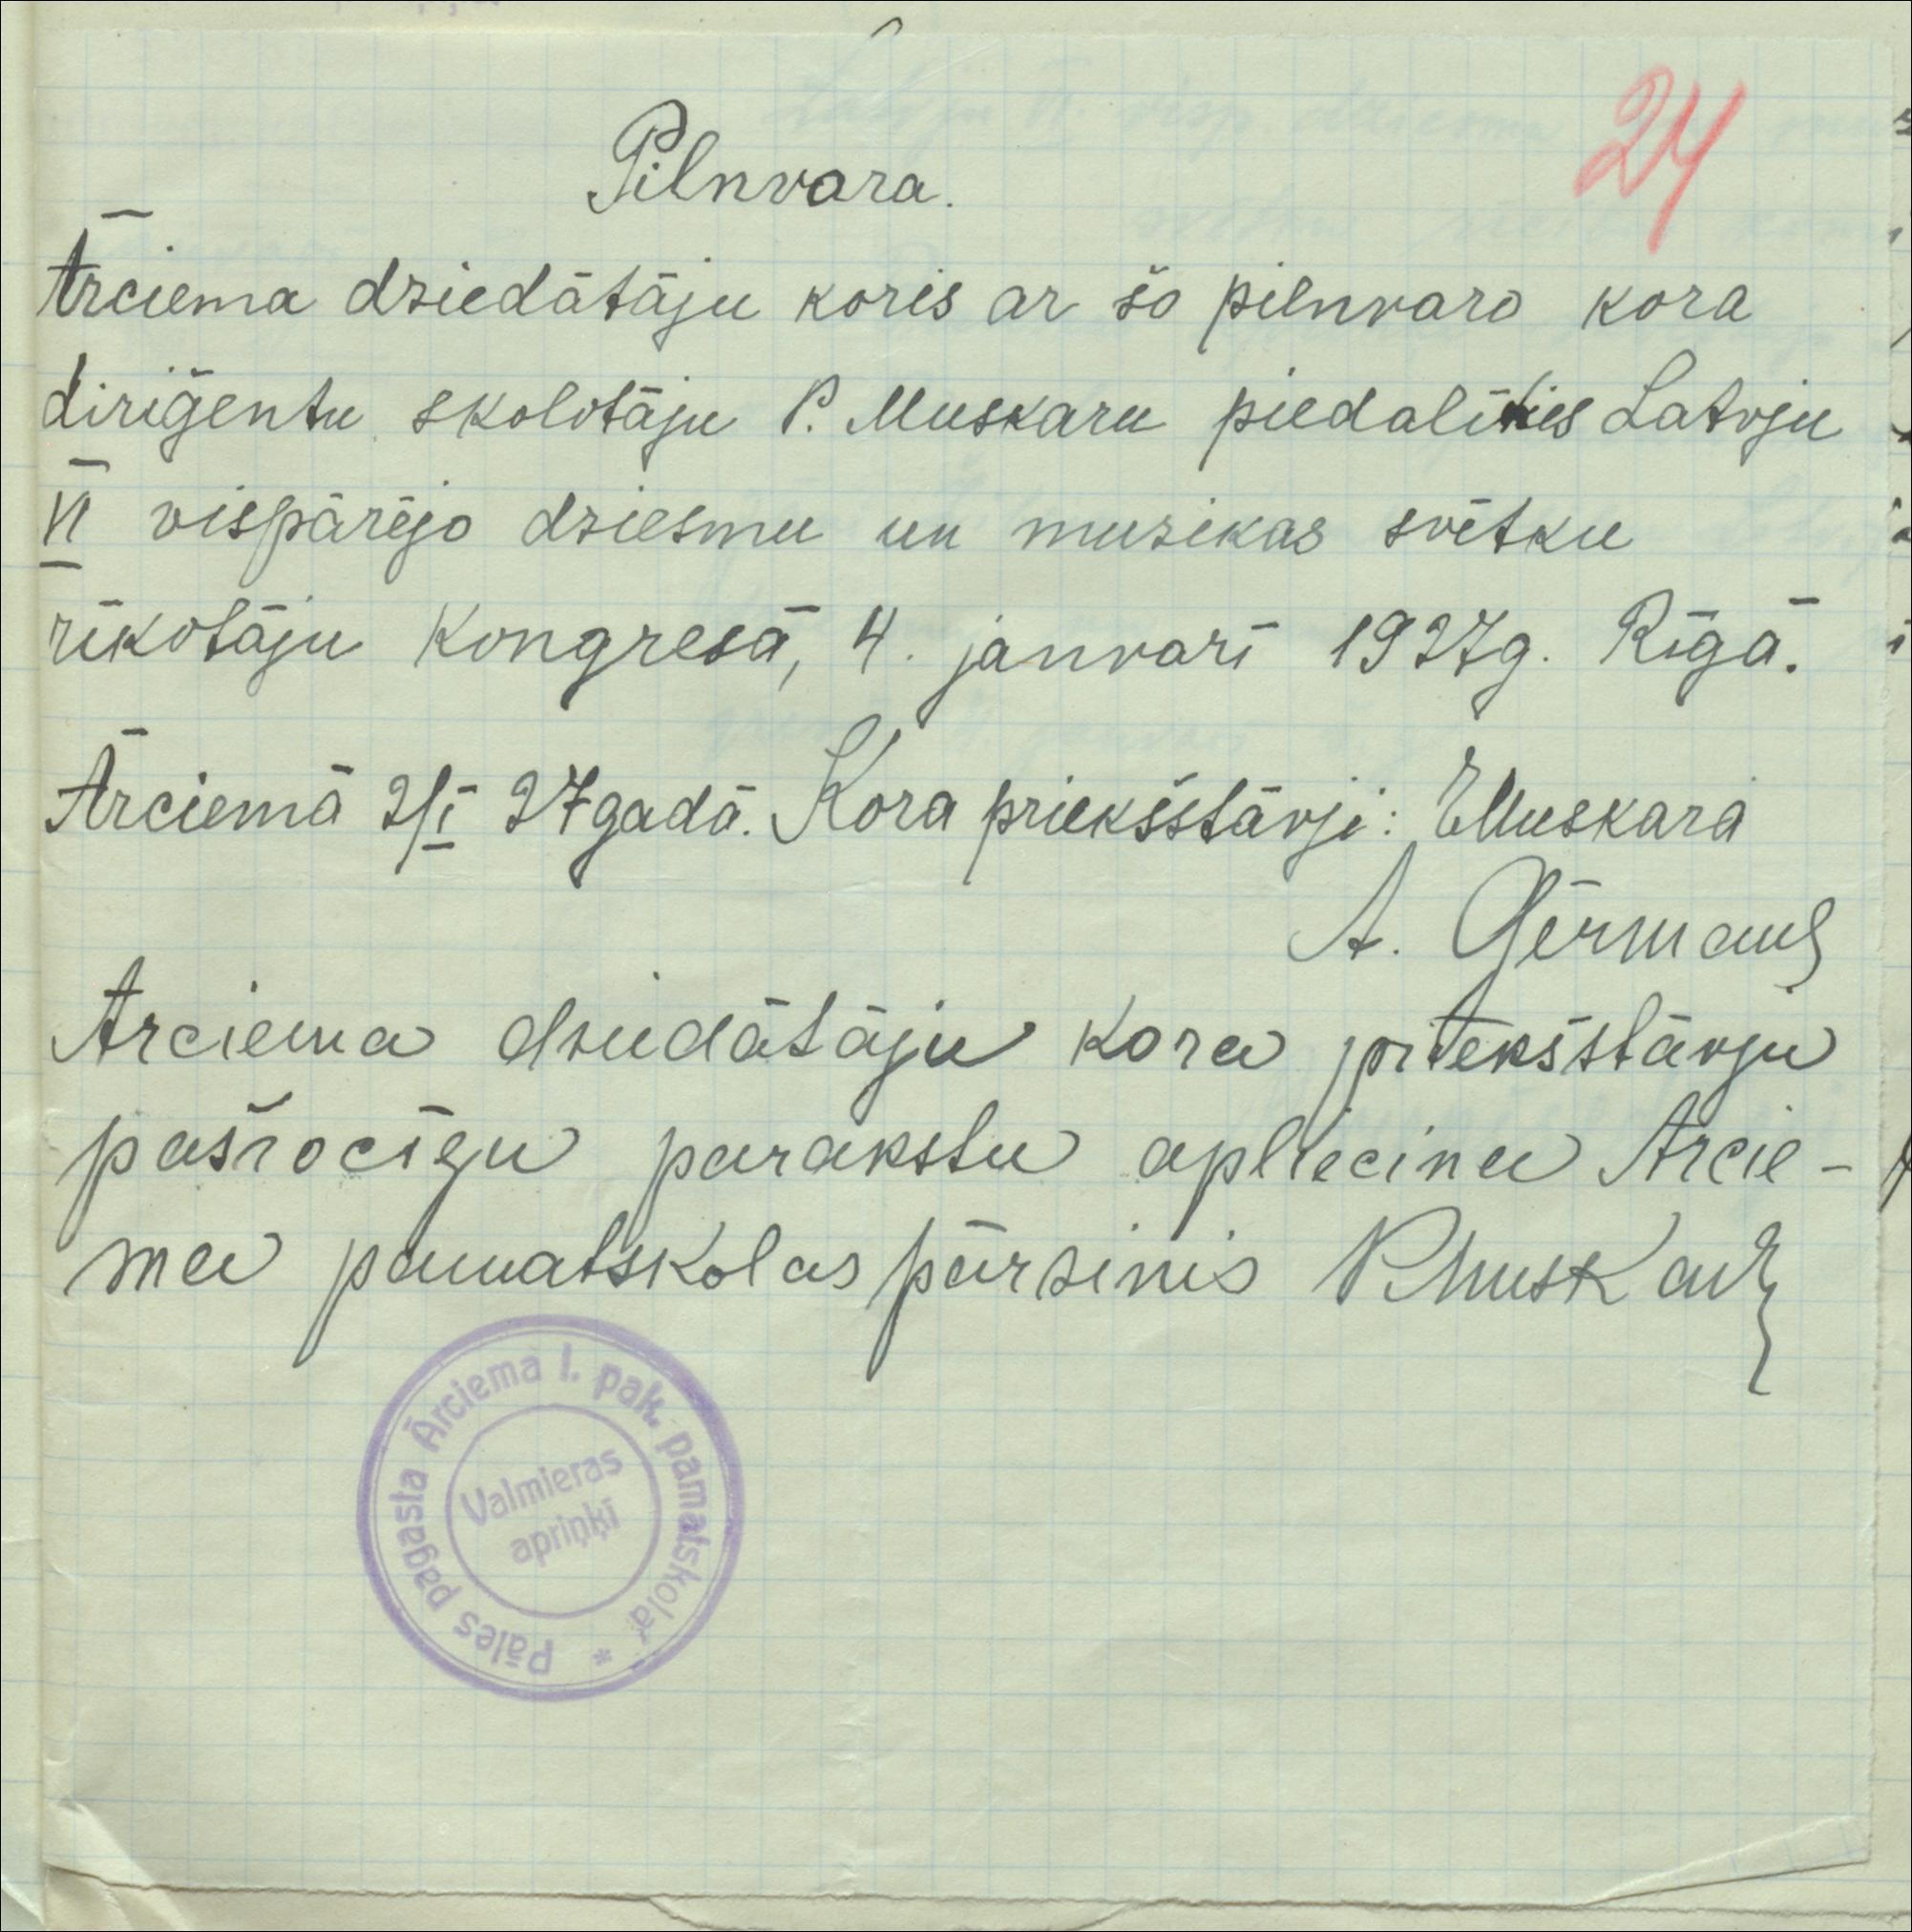 24
Pilnvara.
Ārciema dziedātāju koris ar šo pilnvaro kora
diriģentu skolotāju P. Muskaru piedalīties Latvju
VI vispārējo dziesmu un muzikas svētku
rīkotāju kongresā, 4. janvarī 1927g. Rīgā.
Ārciemā 2/I 27gadā. Kora priekšstāvji: EMuskara
A. Ģērmans
Arciema dziedātāju kora priekšstāvju
pašrocīgu parakstu apliecinu Arcie-
ma pamatskolas pārzinis PMuskars
Pāles pagasta Ārciema I. pak. pamatskola *
Valmieras
apriņķī